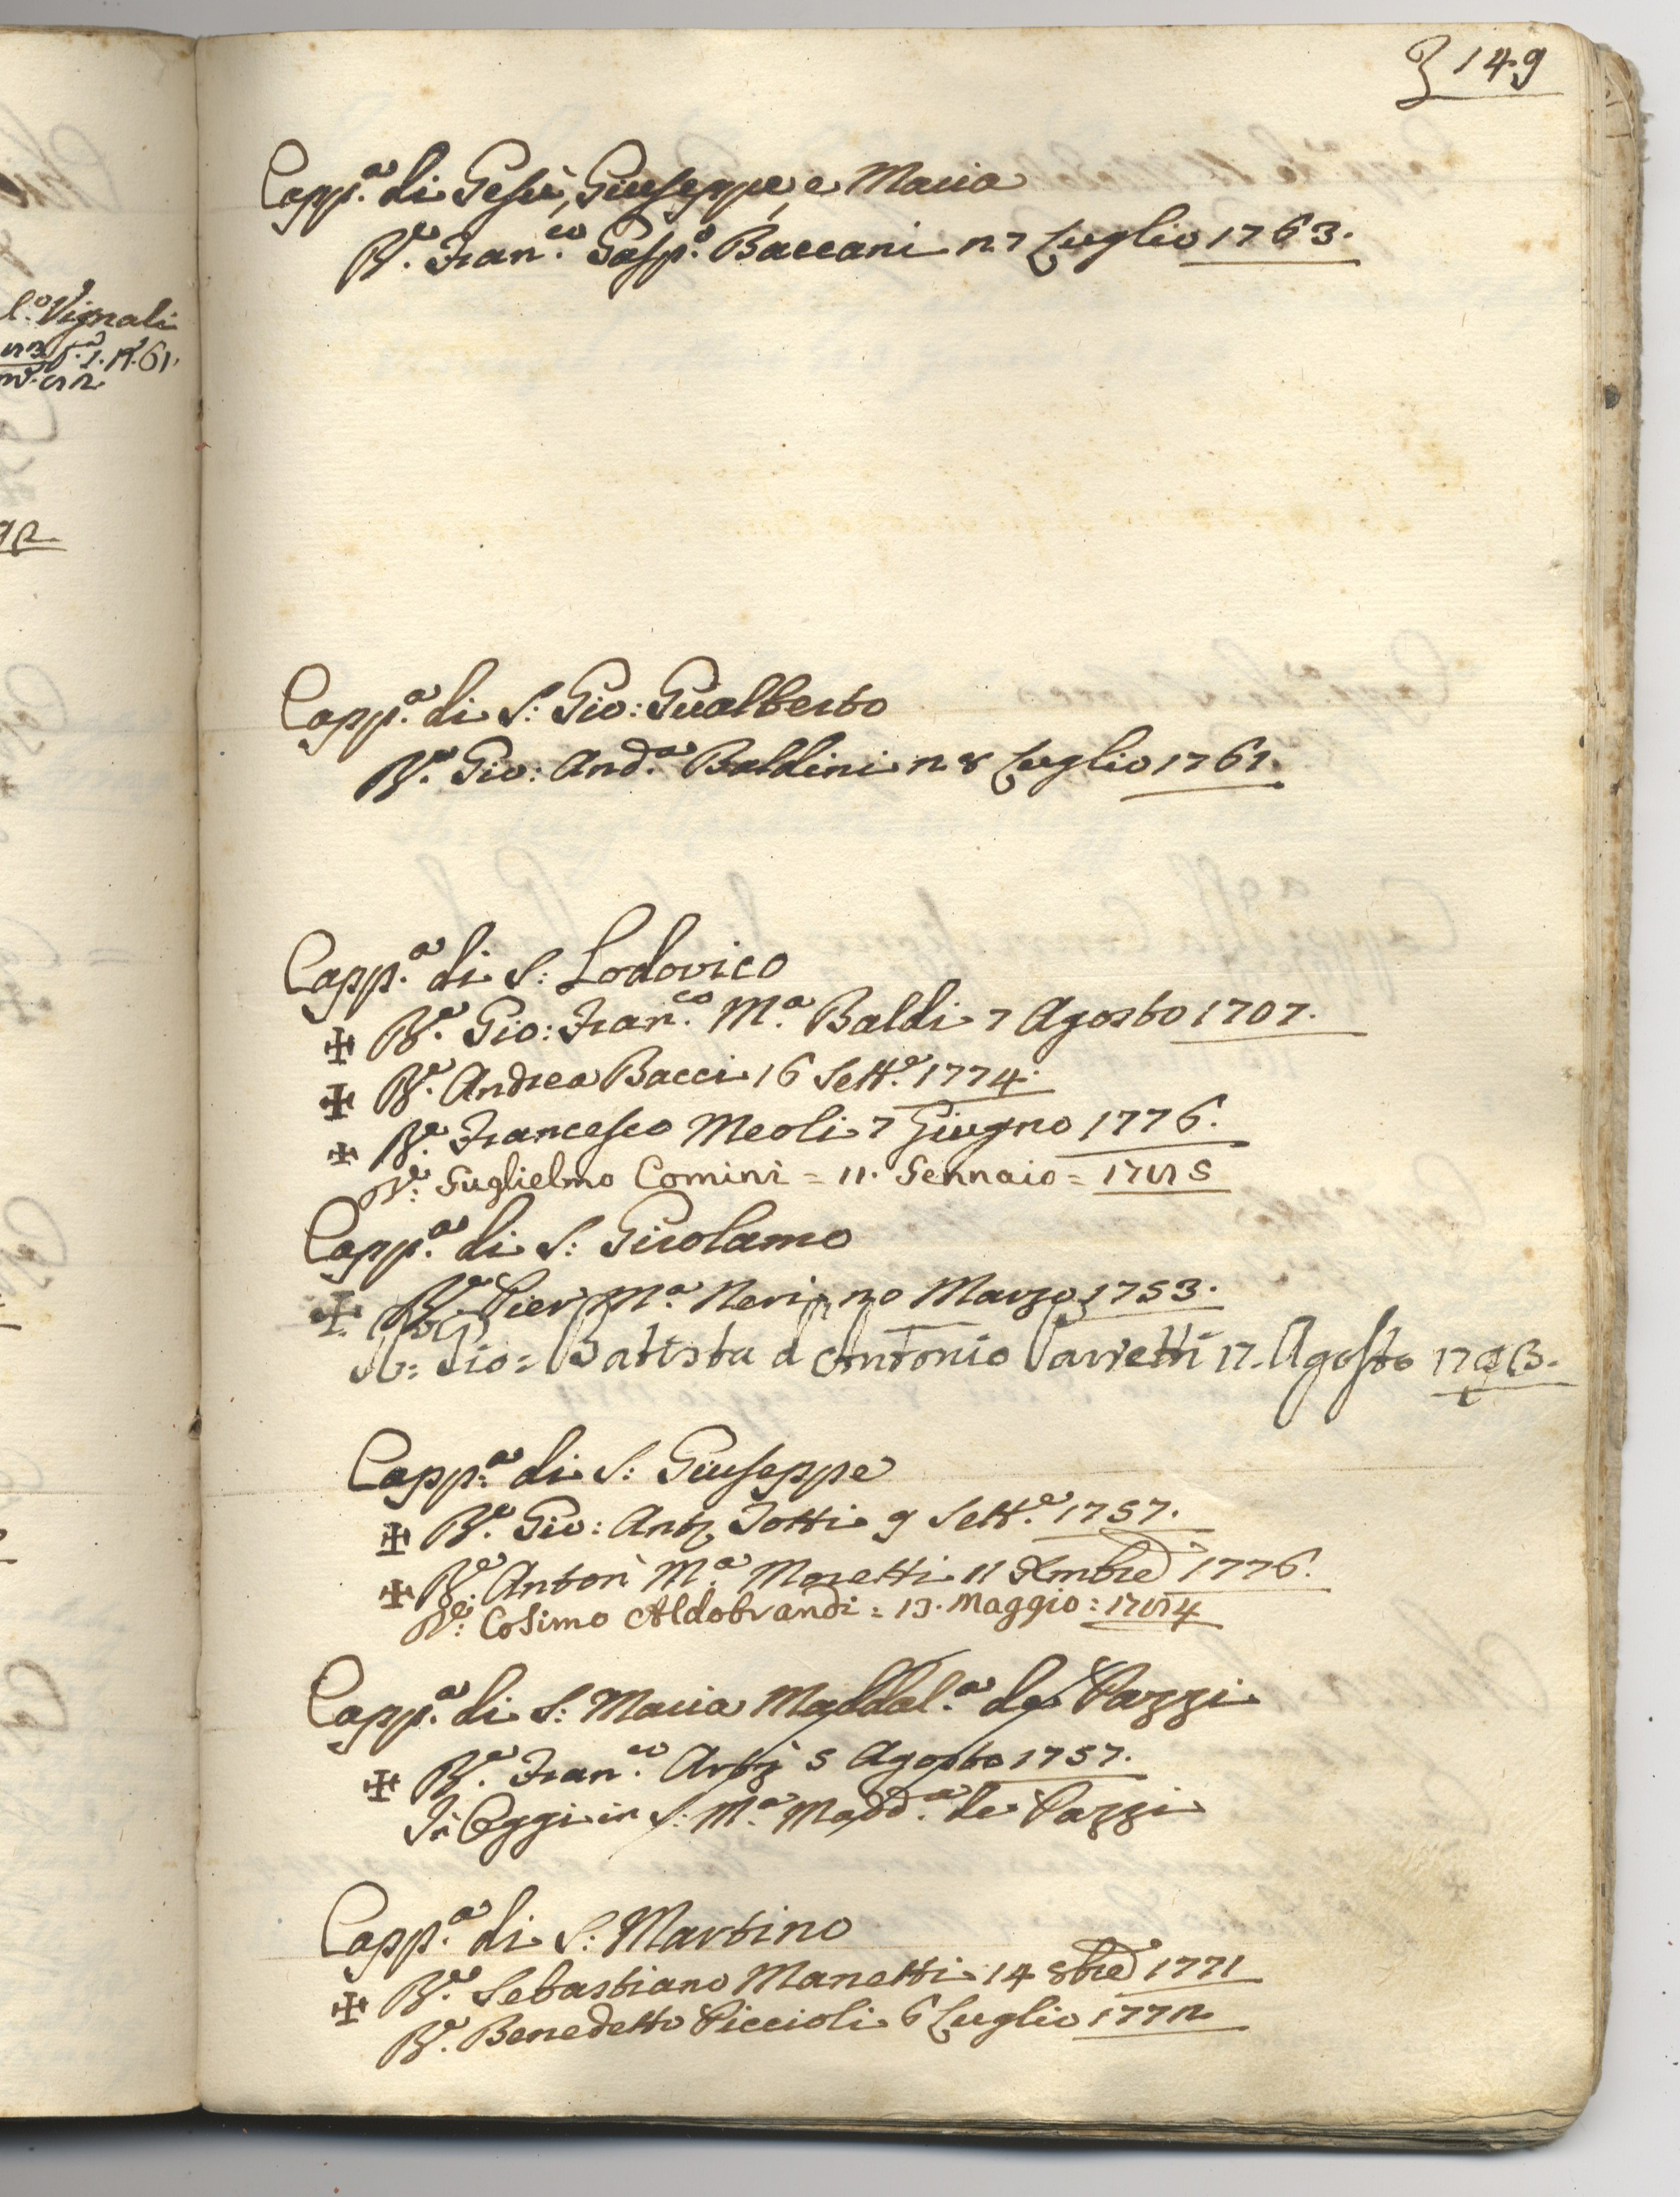 149
Capp.a di Gesù, Giuseppe, e Maria
R.e Fran.co Gasp.o Baccani 27 Luglio 1763.
l.o Vignali
Capp.a di S: Gio: Gualberto
R.e Gio: And.a Baldini 28 Luglio 1761.
Capp.a di S: Lodovico
✠ R.e Gio: Fran.co M.a Baldi 7 Agosto 1707.
✠ R.e Andrea Bacci 16 Sett.e 1774.
✠ R.e Francesco Meoli 7 Giugno 1776.
R.e: Guglielmo Comini = 11. Gennaio =
Capp.a di S: Girolamo
✠ R.e Pier M.a Neri 20 Marzo 1753.
R: Gio= Batista d Antonio 17. Agosto
Capp.a di S: Giuseppe
✠ R.e Gio: Ant.o Totti 9 Sett.e 1757.
✠ R.e Anton M.a Moretti 11 Xmbre 1776.
R.e: Cosimo Aldobrandi = 13. Maggio =
Capp.a di S: Maria Maddal.a de Pazzi
✠ R.e Fran.co 5 Agosto 1757.
Oggi in S: M.a Madd.a de Pazzi
Capp.a di S: Martino
✠ R.e Sebastiano Manetti 14 8bre 1771
R.e Benedetto Piccioli 6 Luglio 1772